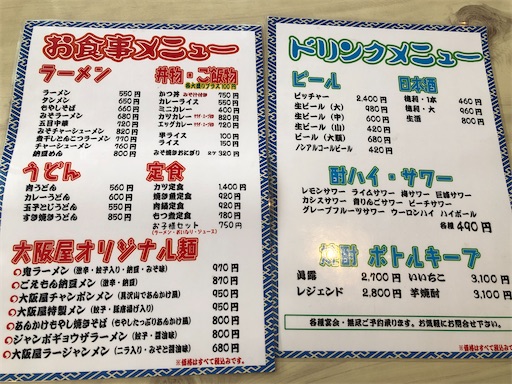 お食事メニュー
ラーメン
ラーメン 550円
タンメン 650円
もやしそば 650円
みそラーメン 680円
五目中華 720円
みそチャーシューメン 820円
煮干しとんこつラーメン 770円
チャーシューメン 760円
納豆めん 800円
丼物・ご飯物
各大盛りプラス100円
かつ丼 みそ汁付き 750円
カレーライス 550円
ミニカレー 400円
カツカレー
エッグカレー
半ライス 100円
ライス 150円
みそ焼きおにぎり 1ケ 320円
うどん
肉うどん 560円
カレーうどん 600円
玉子とじうどん 550円
すき焼きうどん 850円
定食
カツ定食 1,400円
焼き魚定食 920円
肉鍋定食 920円
もつ煮定食 780円
お子様セット 750円
(ラーメン・おにぎり・ジュース)
大阪屋オリジナル麺
鬼ラーメン(激辛・餃子入り・納豆・みそ味) 970円
ごえもん納豆メン(激辛・納豆) 870円
大阪屋チャンポンメン(具沢山であんかけ風) 950円
大阪屋特製メン(餃子・豚唐揚げ入り) 950円
あんかけもやし焼きそば(もやしたっぷりあんかけ風) 800円
ジャンボギョウザラーメン(餃子・醤油味) 800円
大阪屋ラージャンメン(ニラ入り・みそと醤油味) 680円
※価格はすべて税込みです。
ドリンクメニュー
ビール
ピッチャー 2,400円
生ビール(大) 980円
生ビール(中) 600円
生ビール(小) 420円
ビール(大瓶) 680円
ノンアルコールビール 420円
日本酒
徳利・1本 460円
徳利・大 960円
生酒 800円
酎ハイ・サワー
レモンサワー ライムサワー 梅サワー 巨峰サワー
カシスサワー 青りんごサワー ピーチサワー
グレープフルーツサワー ウーロンハイ ハイボール
各種 490円
焼酎 ボトルキープ
眞露 2,700円 いいちこ 3,100円
レジェンド 2,800円 芋焼酎 3,100円
各種宴会・随時ご予約承ります。お気軽にお問合せ下さい。
※価格はすべて税込みです。